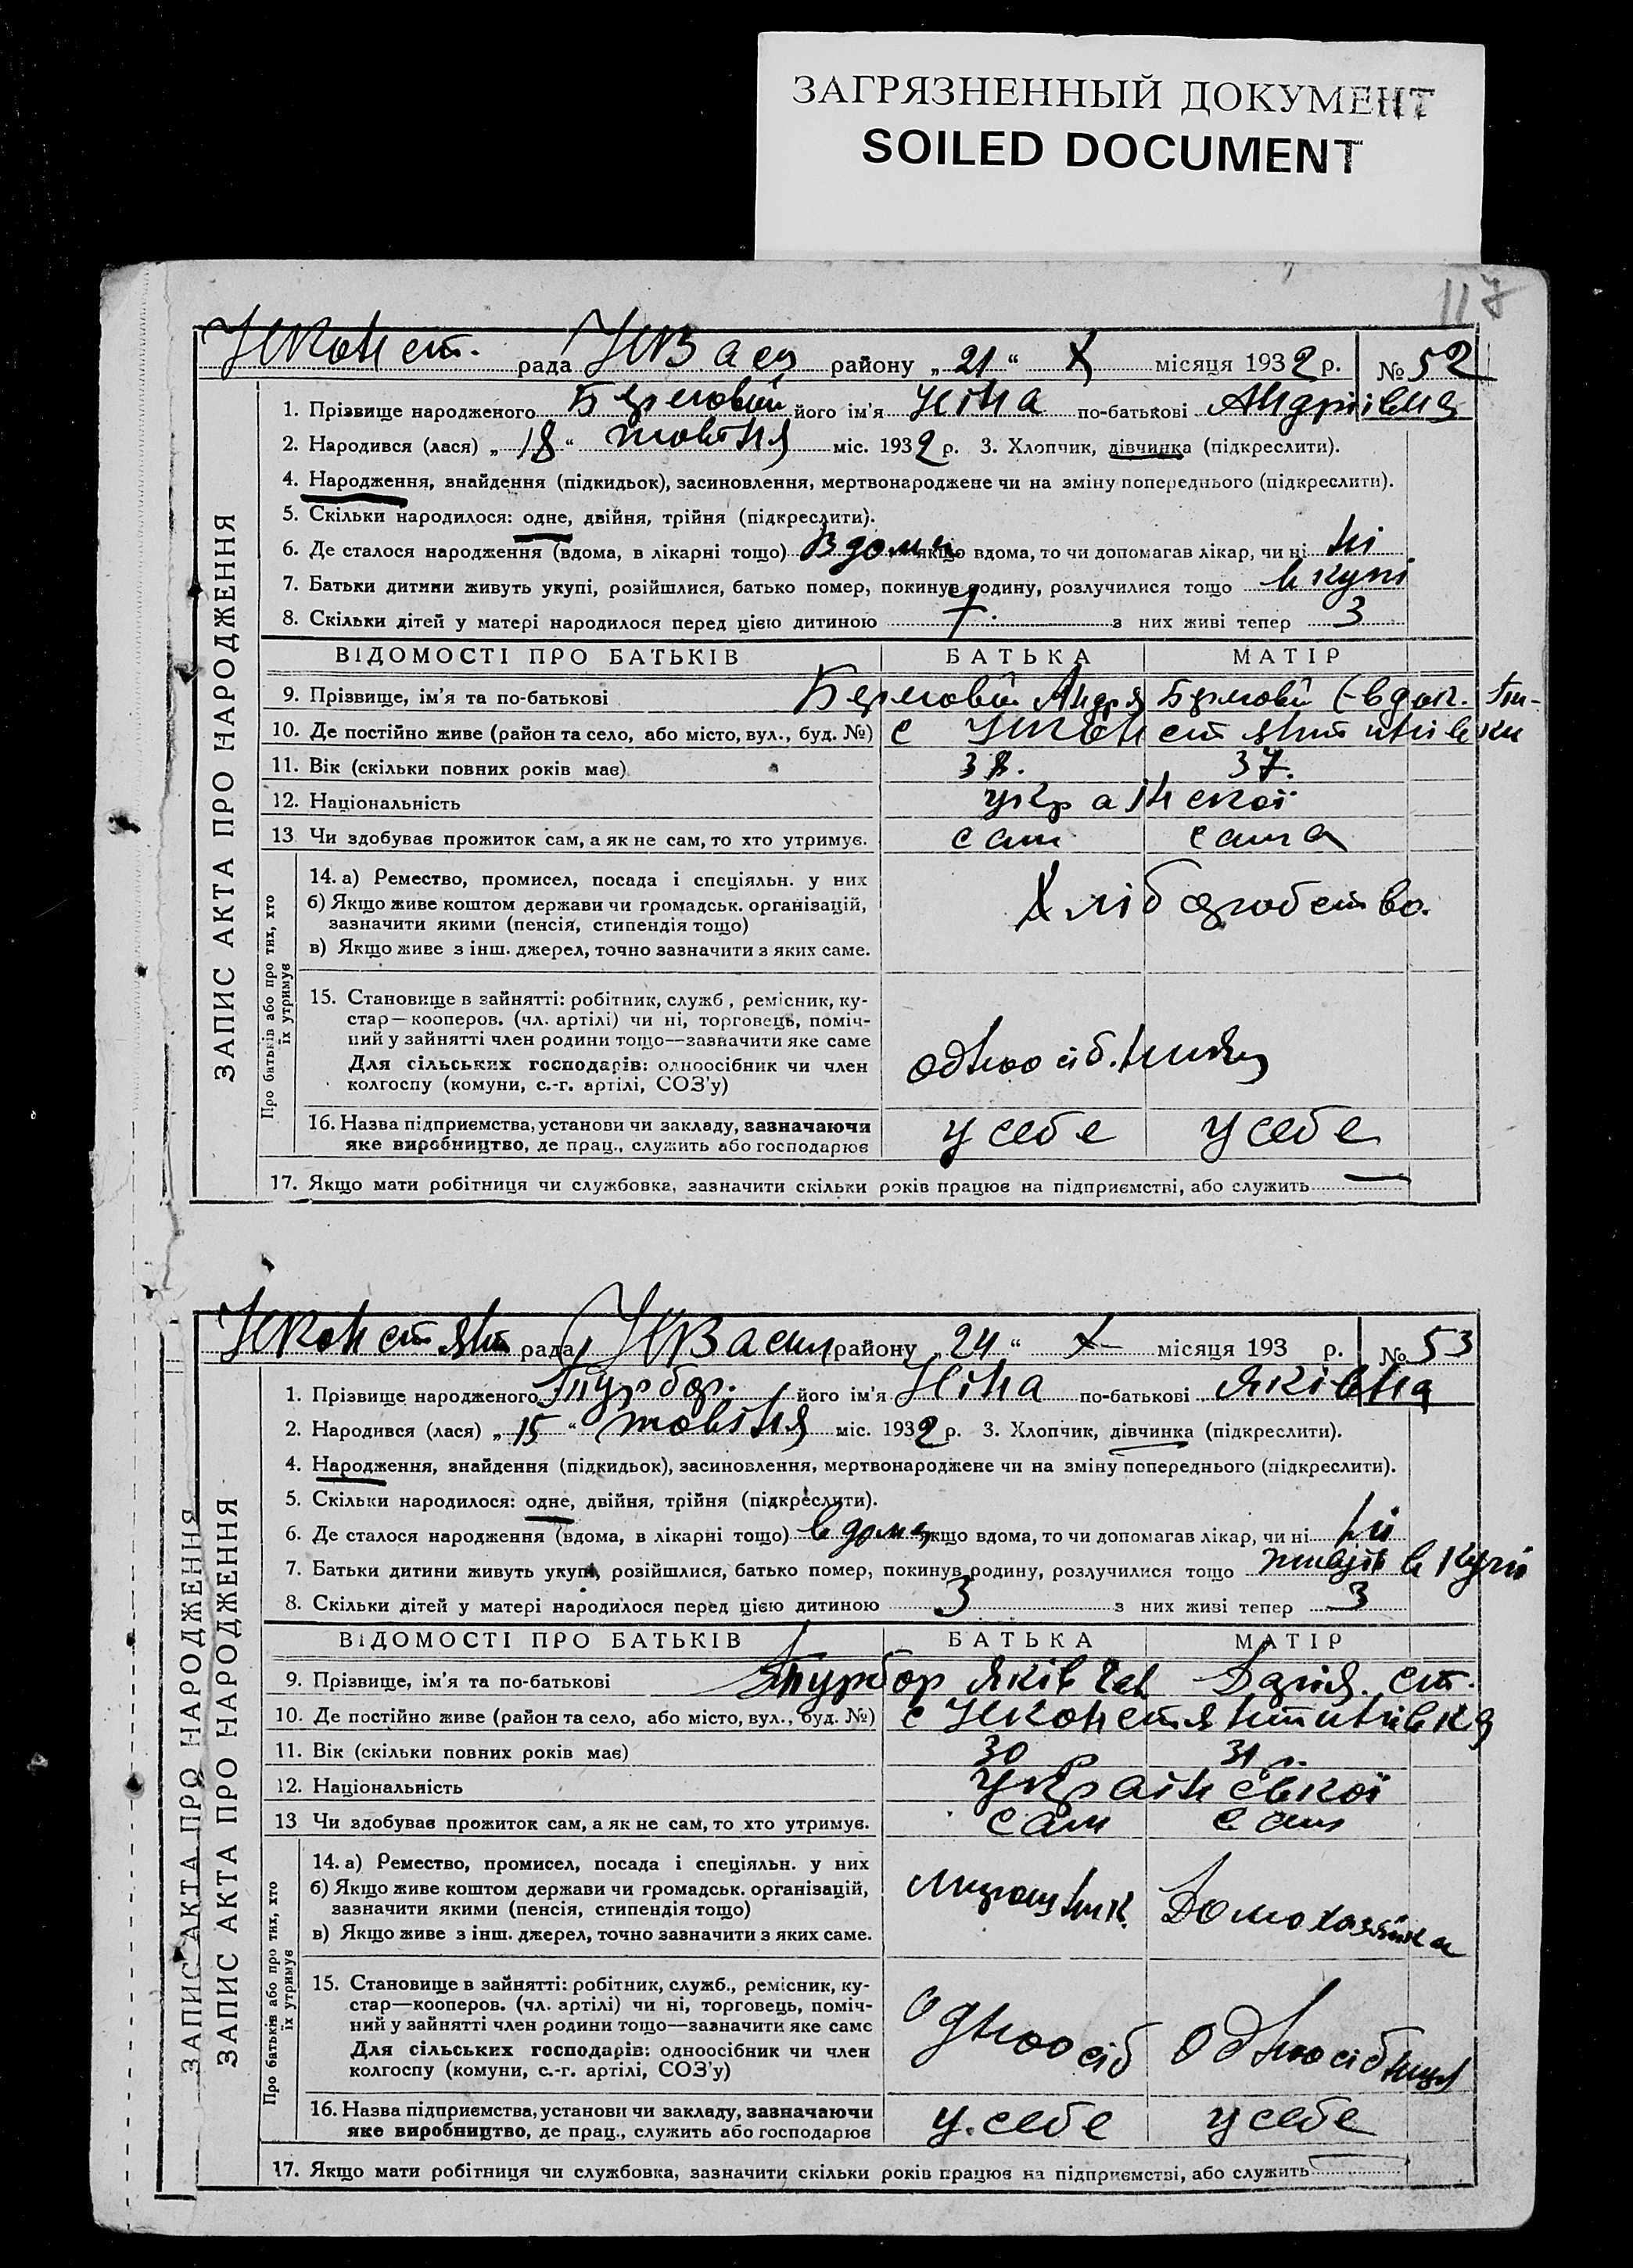 ЗАГРЯЗНЕННЫЙ ДОКУМЕНТ
SOILED DOCUMENT
117
рада району „ 21 “ X місяця 1932 р. № 52
ЗАПИС АКТА ПРО НАРОДЖЕННЯ
1. Прізвище народженого його ім'я Ніна по-батькові Андріївна
2. Народився (лася) „ 18 “ жовтня міс. 1932 р. 3. Хлопчик, дівчинка (підкреслити).
4. Народження, знайдення (підкидьок), засиновлення, мертвонароджене чи на зміну попереднього (підкреслити).
5. Скільки народилося: одне, двійня, трійня (підкреслити).
6. Де сталося народження (вдома, в лікарні тощо) Вдома якщо вдома, то чи допомагав лікар, чи ні ні
7. Батьки дитини живуть укупі, розійшлися, батько помер, покинув родину, розлучилися тощо вкупі
8. Скільки дітей у матері народилося перед цією дитиною з них живі тепер 3
ВІДОМОСТІ ПРО БАТЬКІВ БАТЬКА МАТІР
9. Прізвище, ім'я та по-батькові
10. Де постійно живе (район та село, або місто, вул., буд. №) с
11. Вік (скільки повних років має) 38. 37.
12. Національність української
13. Чи здобуває прожиток сам, а як не сам, то хто утримує. сам сама
Про батьків або про тих, хто їх утримує
14. а) Ремество, промисел, посада і спеціяльн. у них
б) Якщо живе коштом держави чи громадськ. організацій,
зазначити якими (пенсія, стипендія тощо)
в) Якщо живе з інш. джерел, точно зазначити з яких саме.
Хліборобство.
15. Становище в зайнятті: робітник, служб, ремісник, ку-
стар—кооперов. (чл. артілі) чи ні, торговець, поміч-
ний у зайнятті член родини тощо—зазначити яке саме
Для сільських господарів: одноосібник чи член
колгоспу (комуни, с.-г. артілі, СОЗ'у)
16. Назва підприємства, установи чи закладу, зазначаючи
яке виробництво, де прац., служить або господарює
у себе у себе
17. Якщо мати робітниця чи службовка, зазначити скільки років працює на підприємстві, або служить —
рада району „ 24 “ X місяця 193 р. № 53
ЗАПИС АКТА ПРО НАРОДЖЕННЯ
ЗАПИС АКТА ПРО НАРОДЖЕННЯ
1. Прізвище народженого його ім'я Ніна по-батькові Яківна
2. Народився (лася) „ 15 “ жовтня міс. 1932 р. 3. Хлопчик, дівчинка (підкреслити).
4. Народження, знайдення (підкидьок), засиновлення, мертвонароджене чи на зміну попереднього (підкреслити).
5. Скільки народилося: одне, двійня, трійня (підкреслити).
6. Де сталося народження (вдома, в лікарні тощо) вдома якщо вдома, то чи допомагав лікар, чи ні ні
7. Батьки дитини живуть укупі, розійшлися, батько помер, покинув родину, розлучилися тощо живуть вкупі
8. Скільки дітей у матері народилося перед цією дитиною 3 з них живі тепер 3
ВІДОМОСТІ ПРО БАТЬКІВ БАТЬКА МАТІР
9. Прізвище, ім'я та по-батькові Яків
10. Де постійно живе (район та село, або місто, вул., буд. №) с
11. Вік (скільки повних років має) 30 р 31 р.
12. Національність української
13 Чи здобуває прожиток сам, а як не сам, то хто утримує. сам сам
Про батьків або про тих, хто їх утримує
14. а) Ремество, промисел, посада і спеціяльн. у них
б) Якщо живе коштом держави чи громадськ. організацій,
зазначити якими (пенсія, стипендія тощо)
в) Якщо живе з інш. джерел, точно зазначити з яких саме.
Домохазяйка
15. Становище в зайнятті: робітник, служб., ремісник, ку-
стар—кооперов. (чл. артілі) чи ні, торговець, поміч-
ний у зайнятті член родини тощо—зазначити яке саме
Для сільських господарів: одноосібник чи член
колгоспу (комуни, с.-г. артілі, СОЗ'у)
Одноосіб Одноосібниця
16. Назва підприємства, установи чи закладу, зазначаючи
яке виробництво, де прац., служить або господарює
у. себе у себе
17. Якщо мати робітниця чи службовка, зазначити скільки років працює на підприємстві, або служить